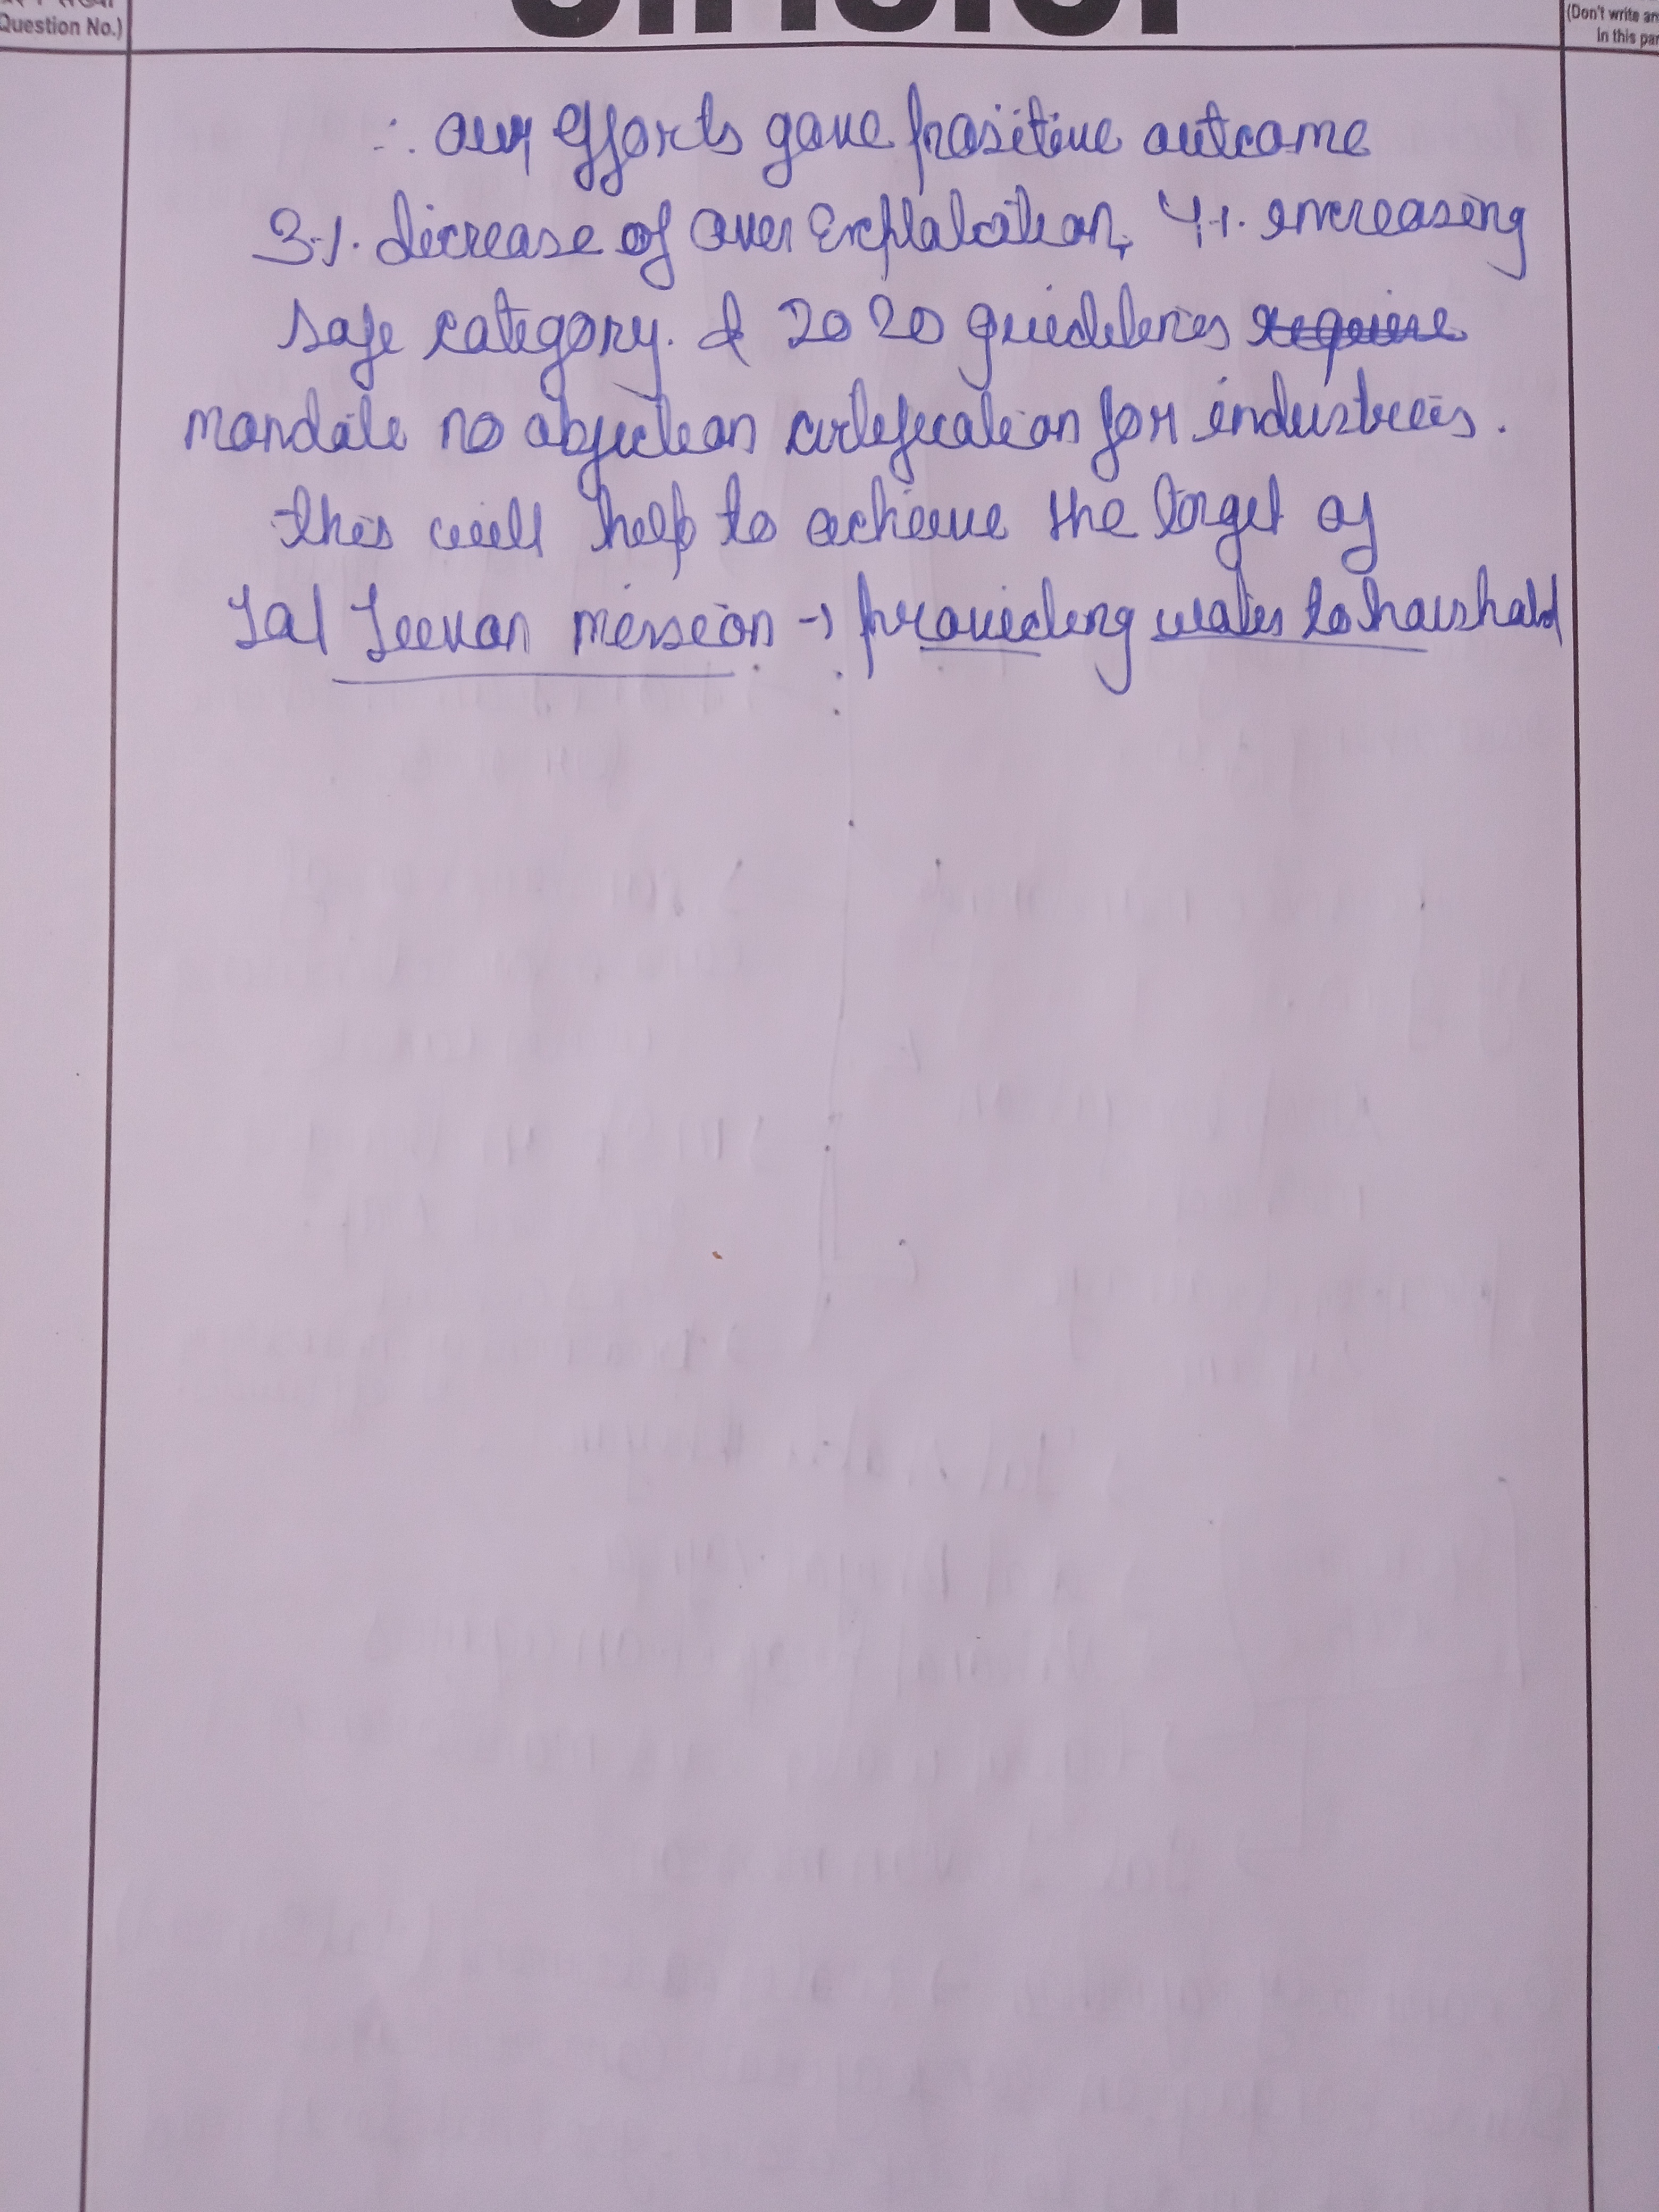 Question No.)
(Don't write an
In this par
∴ our efforts gave positive outcome
3%. decrease of over Exploitation, 4%. increasing
safe category. & 2020 guidelines require
mandate no objection certification for industries.
this will help to achieve the target of
Jal Jeevan mission → providing water to houshold